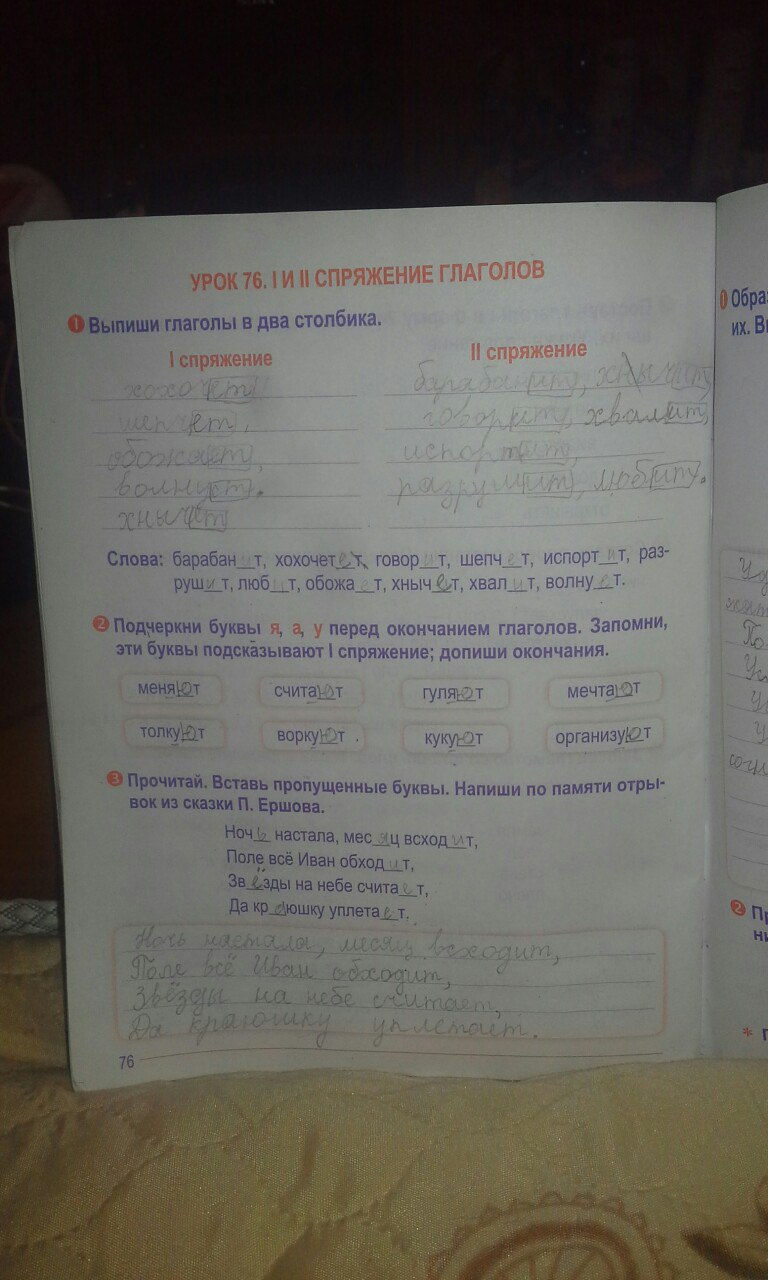 УРОК 76. I И II СПРЯЖЕНИЕ ГЛАГОЛОВ
1 Выпиши глаголы в два столбика.
I спряжение
хохочет,
шепчет,
обожает,
волнует.
хнычет
II спряжение
барабанит, хнычит,
говорит, хвалит,
испортит,
разрушит, любит.
Слова: барабанит, хохочетет, говорит, шепчет, испортит, раз-
рушит, любит, обожает, хнычет, хвалит, волнует.
2 Подчеркни буквы я, а, у перед окончанием глаголов. Запомни,
эти буквы подсказывают I спряжение; допиши окончания.
меняют считают гуляют мечтают
толкуют воркуют кукуют организуют
3 Прочитай. Вставь пропущенные буквы. Напиши по памяти отры-
вок из сказки П. Ершова.
Ночь настала, месяц всходит,
Поле всё Иван обходит,
Звёзды на небе считает,
Да краюшку уплетает.
Ночь настала, месяц всходит,
Поле всё Иван обходит,
Звёзды на небе считает,
Да краюшку уплетает.
76
1 Обра
их. В
Усп
2 Пр
ни
* П